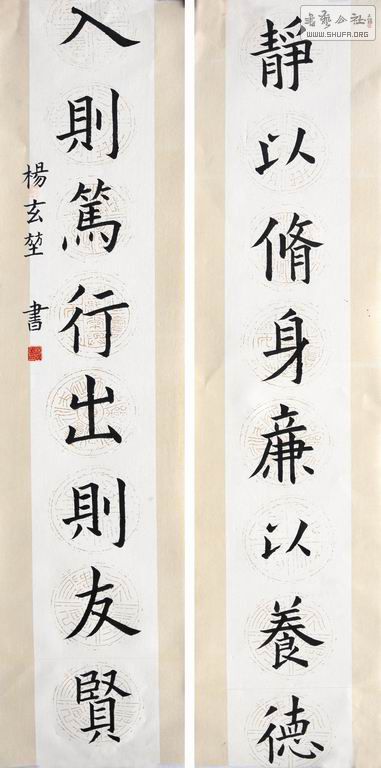 書藝公社
WWW.SHUFA.ORG
靜以脩身廉以養德
入則篤行出則友賢
楊玄 書